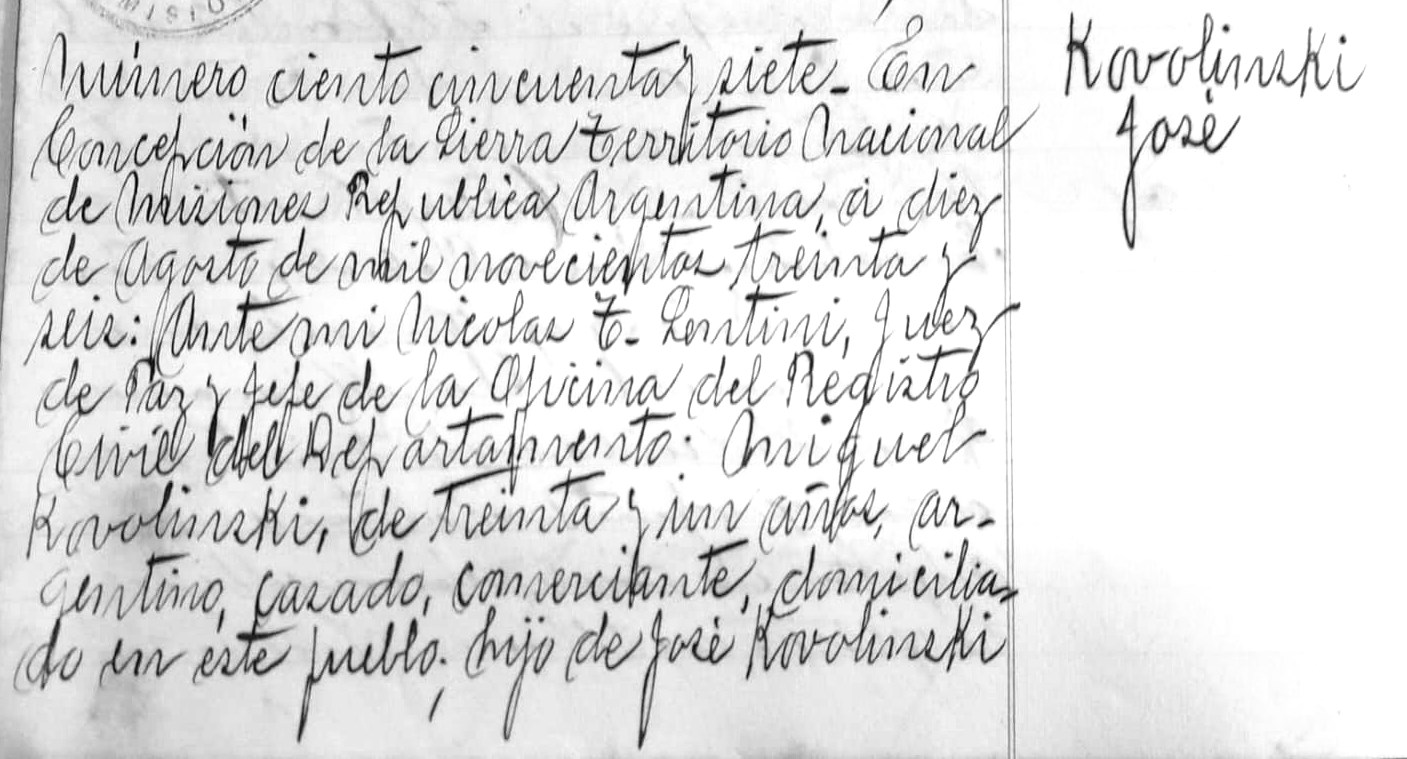 Número ciento cincuenta y siete. En
Concepción de la Sierra Territorio Nacional
de Misiones Republica Argentina, á diez
de Agosto de mil novecientos treinta y
seis: Ante mi Nicolas T. Lentini, Juez
de Paz y Jefe de la Oficina del Registro
Civil del Departamento: Miguel
Kovolinski, de treinta y un años, ar-
gentino, casado, comerciante, domicilia-
do en éste pueblo; hijo de José Kovolinski
Kovolinski
José
MISIO